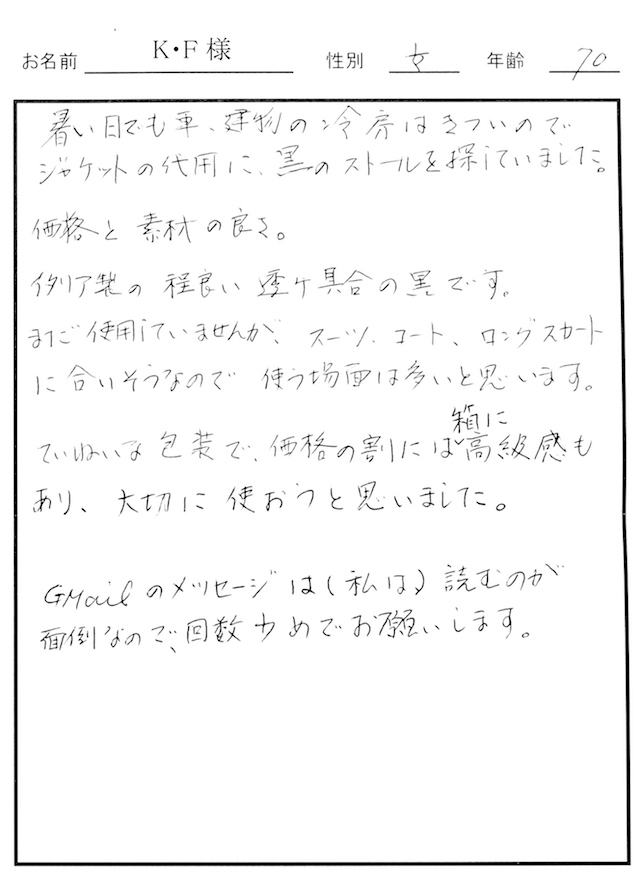 お名前 K・F様 性別 女 年齢 70
暑い日でも車、建物の冷房はきついので
ジャケットの代用に、黒のストールを探していました。
価格と素材の良さ。
イタリア製の程良い透ケ具合の黒です。
まだ使用していませんが、スーツ、コート、ロングスカート
に合いそうなので使う場面は多いと思います。
箱に
ていねいな包装で、価格の割には高級感も
あり、大切に使おうと思いました。
GMailのメッセージは(私は)読むのが
面倒なので、回数少めでお願いします。